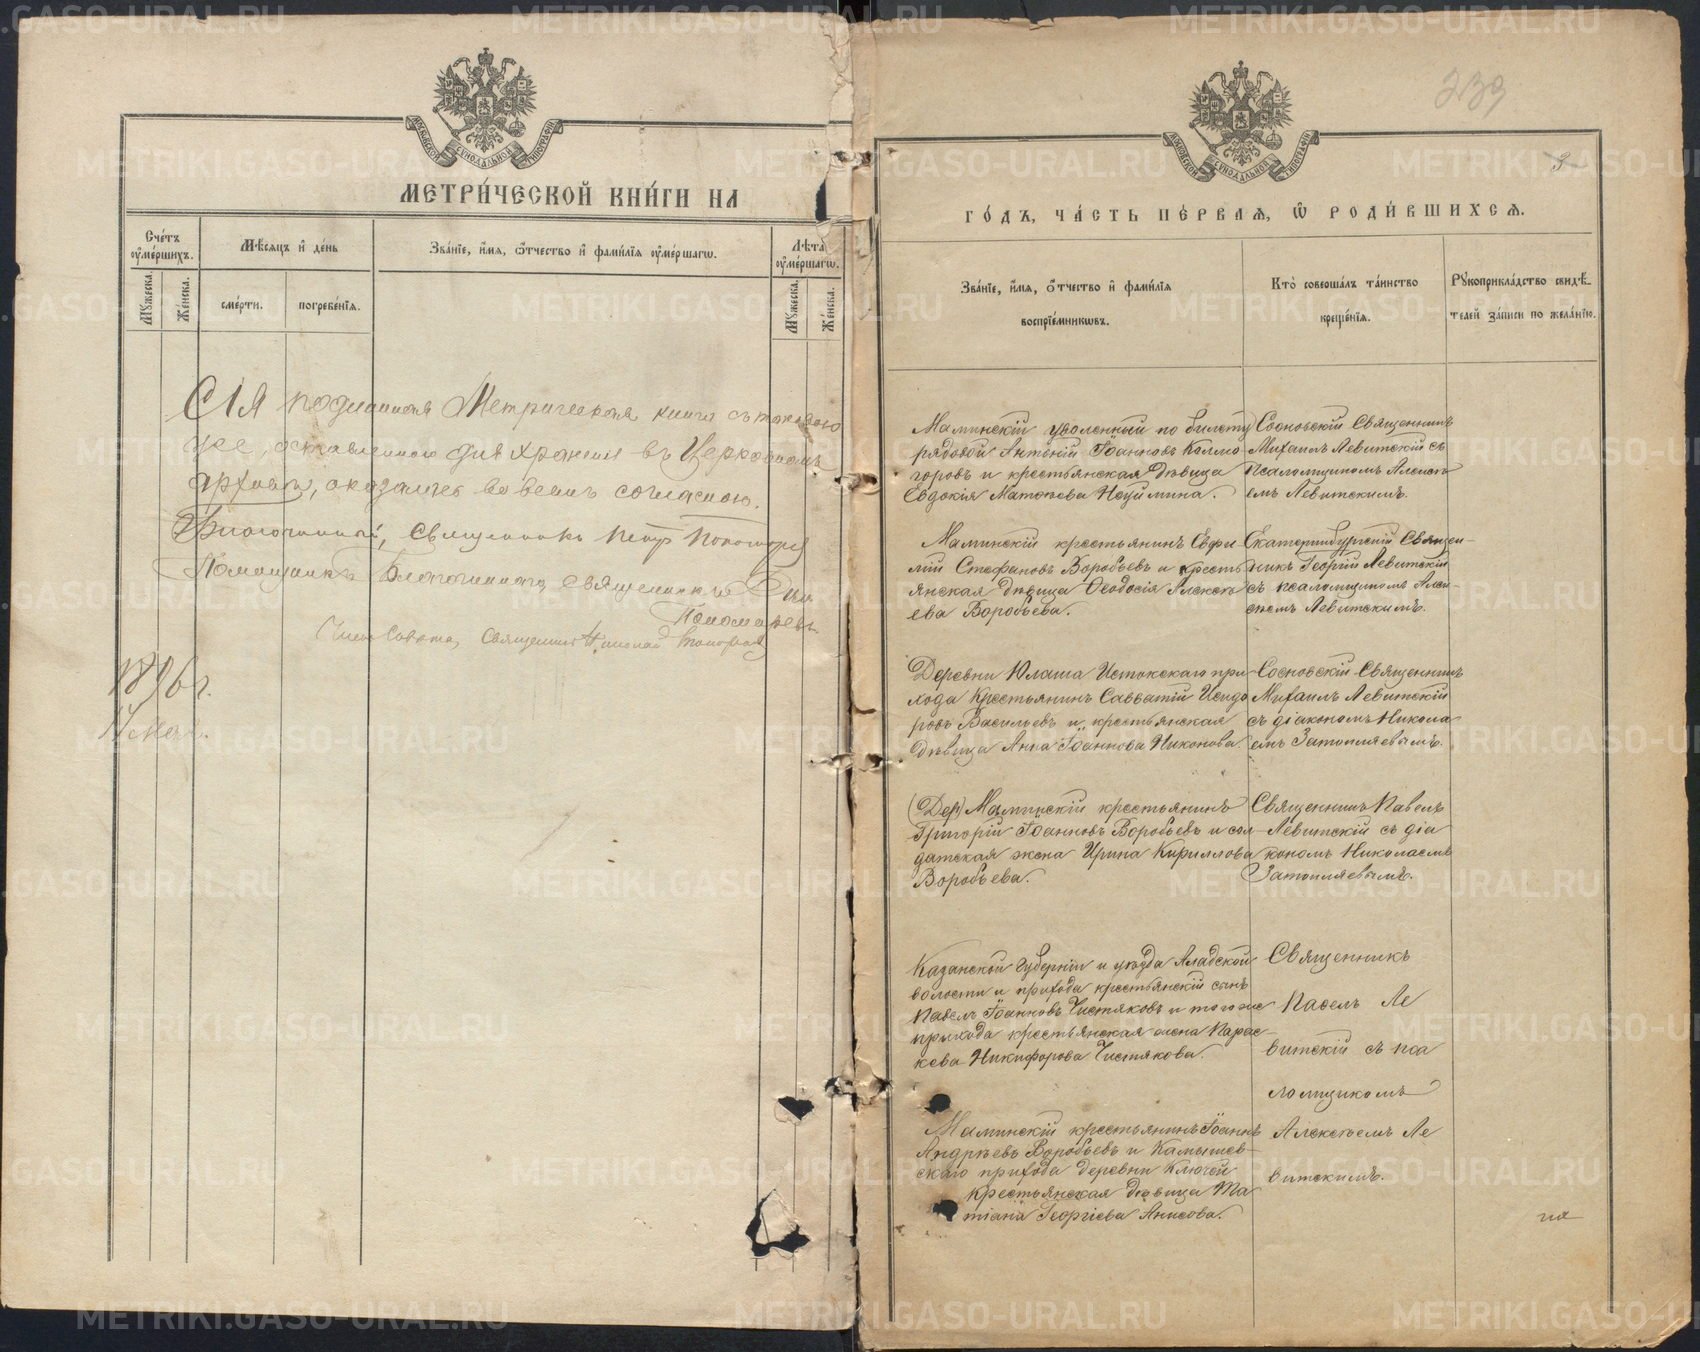 МЕТРИ́ЧЕСКОЙ КНИ́ГИ НА
Счéтъ
ѹ҆мéршихъ.
Мꙋжеска.
Же́нска.
Мѣ́сяцъ и҆ де́нь
смéрти.
погребéнїя.
Звáнїе, и҆́мя, ѻ҆́тчество и҆ фами́лїя ѹ҆мéршагѡ.
Лѣ́та
ѹ҆мéршагѡ.
Мꙋжеска.
Же́нска.
СІЯ подлинная Метрическая книга съ таковою
же, оставленною для храненія въ Церковномъ
архивѣ, оказалась во всемъ согласною.
Благочинный, Священникъ Петръ Пономарев
Помощникъ Благочиннаго, священникъ
Пономаревъ
Членъ Совѣта, Священникъ Николай
1896 г.
мая.
239
3
ГО́ДЪ, ЧА́СТЬ ПЕ́РВАЯ, Ѡ҆ РОДИ́ВШИХСЯ.
Звáнїе, и҆́мя, ѻ҆́тчество и҆ фами́лїя
воспрїéмникѡвъ.
Кто̀ совершáлъ тáинство
крещéнїя.
Рꙋкоприклáдство свидѣ́-
телей зáписи по желáнїю.
Маминскій уволенный по билету
рядовой Антоній Іоанновъ Колмо
горовъ и крестьянская дѣвица
Евдокія Матѳѣева Неуймина.
Сосновскій Священникъ
Михаилъ Левитскій съ
псаломщикомъ Алексѣ
емъ Левитскимъ.
Маминскій крестьянинъ Евфи
мій Стефановъ Воробьевъ и кресть
янская дѣвица Ѳеодосія Алексѣ
ева Воробьева.
Екатеринбургскій Священ-
никъ Георгій Левитскій
съ псаломщикомъ Алек-
сѣемъ Левитскимъ.
Деревни Юлаша Истокскаго при-
хода Крестьянинъ Савватій Исидо
ровъ Васильевъ и крестьянская
дѣвица Анна Іоаннова Никонова.
Сосновскій Священникъ
Михаилъ Левитскій
съ діакономъ Никола
емъ Затопляевымъ.
(Дер) Маминскій крестьянинъ
Григорій Іоанновъ Воробьевъ и сол-
датская жена Ирина Кириллова
Воробьева.
Священникъ Павелъ
Левитскій съ діа
кономъ Николаемъ
Затопляевымъ.
Казанской губерніи и уѣзда Аладской
волости и прихода крестьянскій сынъ
Павелъ Іоанновъ Чистяковъ и того же
прихода крестьянская жена Парас-
кева Никифорова Чистякова.
Священникъ
Павелъ Ле
витскій съ пса
ломщикомъ
Алексѣемъ Ле
витскимъ.
Маминскій крестьянинъ Іоаннъ
Андреевъ Воробьевъ и Камышев-
скаго прихода деревни Ключей
крестьянская дѣвица Та
тіана Георгіева Анисова.